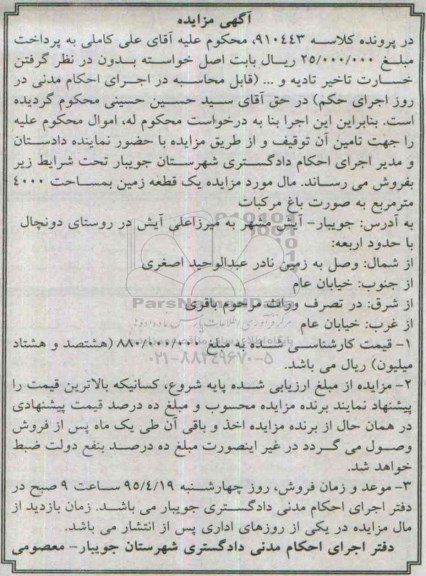 آگهی مزایده
در پرونده کلاسه ۹۱۰۴۴۳، محکوم علیه آقای علی کاملی به پرداخت
مبلغ ۲۵/۰۰۰/۰۰۰ ریال بابت اصل خواسته بدون در نظر گرفتن
خسارت تاخیر تادیه و ... (قابل محاسبه در اجرای احکام مدنی در
روز اجرای حکم) در حق آقای سید حسین حسینی محکوم گردیده
است. بنابراین این اجرا بنا به درخواست محکوم له، اموال محکوم علیه
را جهت تامین آن توقیف و از طریق مزایده با حضور نماینده دادستان
و مدیر اجرای احکام دادگستری شهرستان جویبار تحت شرایط زیر
بفروش می رساند. مال مورد مزایده یک قطعه زمین بمساحت ۴۰۰۰
مترمربع به صورت باغ مرکبات
به آدرس: جویبار- آیش مشهر به میرزاعلی آیش در روستای دونچال
با حدود اربعه:
از شمال: وصل به زمین نادر عبدالوحید اصغری
از جنوب: خیابان عام
از شرق: در تصرف وراث مرحوم باقری
از غرب: خیابان عام
ParsNamadData
۰۲۱-۸۸۳۴۹۶۷۰-۵
۱- قیمت کارشناسی شده به مبلغ ۸۸۰/۰۰۰/۰۰۰ (هشتصد و هشتاد
میلیون) ریال می باشد.
۲- مزایده از مبلغ ارزیابی شده پایه شروع، کسانیکه بالاترین قیمت را
پیشنهاد نمایند برنده مزایده محسوب و مبلغ ده درصد قیمت پیشنهادی
در همان حال از برنده مزایده اخذ و باقی آن طی یک ماه پس از فروش
وصول می گردد در غیر اینصورت مبلغ ده درصد بنفع دولت ضبط
خواهد شد.
۳- موعد و زمان فروش، روز چهارشنبه ۹۵/۴/۱۹ ساعت ۹ صبح در
دفتر اجرای احکام مدنی دادگستری جویبار می باشد. زمان بازدید از
مال مزایده در یکی از روزهای اداری پس از انتشار می باشد.
دفتر اجرای احکام مدنی دادگستری شهرستان جویبار- معصومی